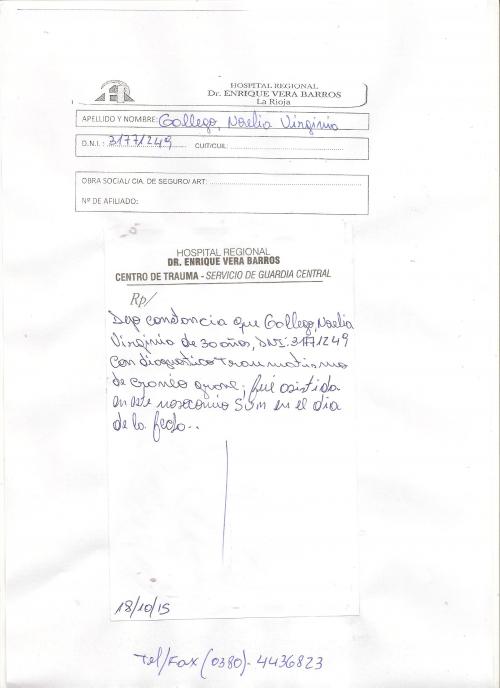 HOSPITAL REGIONAL
Dr. ENRIQUE VERA BARROS
La Rioja
APELLIDO Y NOMBRE: Gallego, Noelia Virginia
D.N.I.: 31771249 CUIT/CUIL:
OBRA SOCIAL/ CIA. DE SEGURO/ ART:
Nº DE AFILIADO:
HOSPITAL REGIONAL
DR. ENRIQUE VERA BARROS
CENTRO DE TRAUMA - SERVICIO DE GUARDIA CENTRAL
Rp/
Dejo constancia que Gallego, Noelia
Virginia de 30 años, DNI: 31771249
con diagnostico traumatismo
de craneo grave, fué asistida
en este nosocomio en el dia
de la fecha..
18/10/15
Tel/Fax (0380)- 4436823